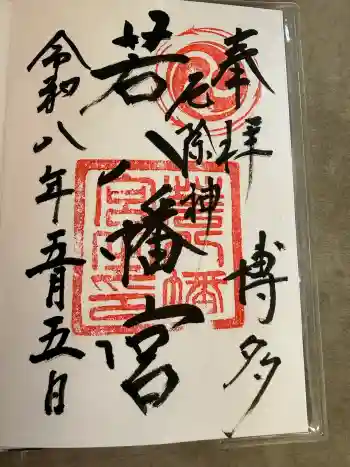 奉拝
博多
厄除神
若八幡宮
令和八年五月五日